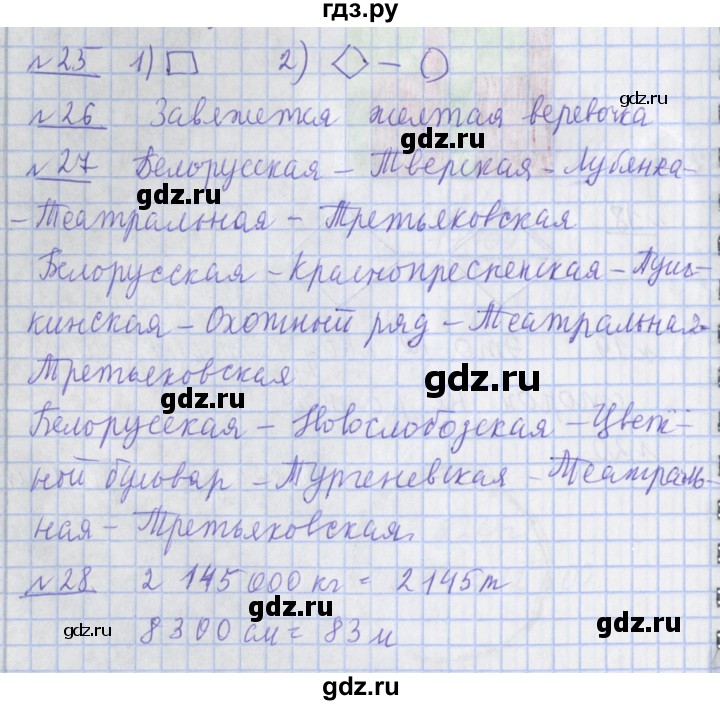 гдз.ру
№25 1) □ 2) ◇ – ○
№26 Завяжется желтая веревочка
gdz.ru
№27 Белорусская – Тверская – Лубянка –
gdz.ru
– Театральная – Третьяковская
gdz.ru
Белорусская – Краснопресненская – Пуш-
кинская – Охотный ряд – Театральная –
gdz.ru
Третьяковская
gdz.ru
gdz.ru
Белорусская – Новослободская – Цвет-
ной бульвар – Тургеневская – Театраль-
gdz.ru
ная – Третьяковская.
gdz.ru
№28 2 145 000 кг = 2145 т
gdz.ru
gdz.ru
gdz.ru 8300 см = 83 м
gdz.ru